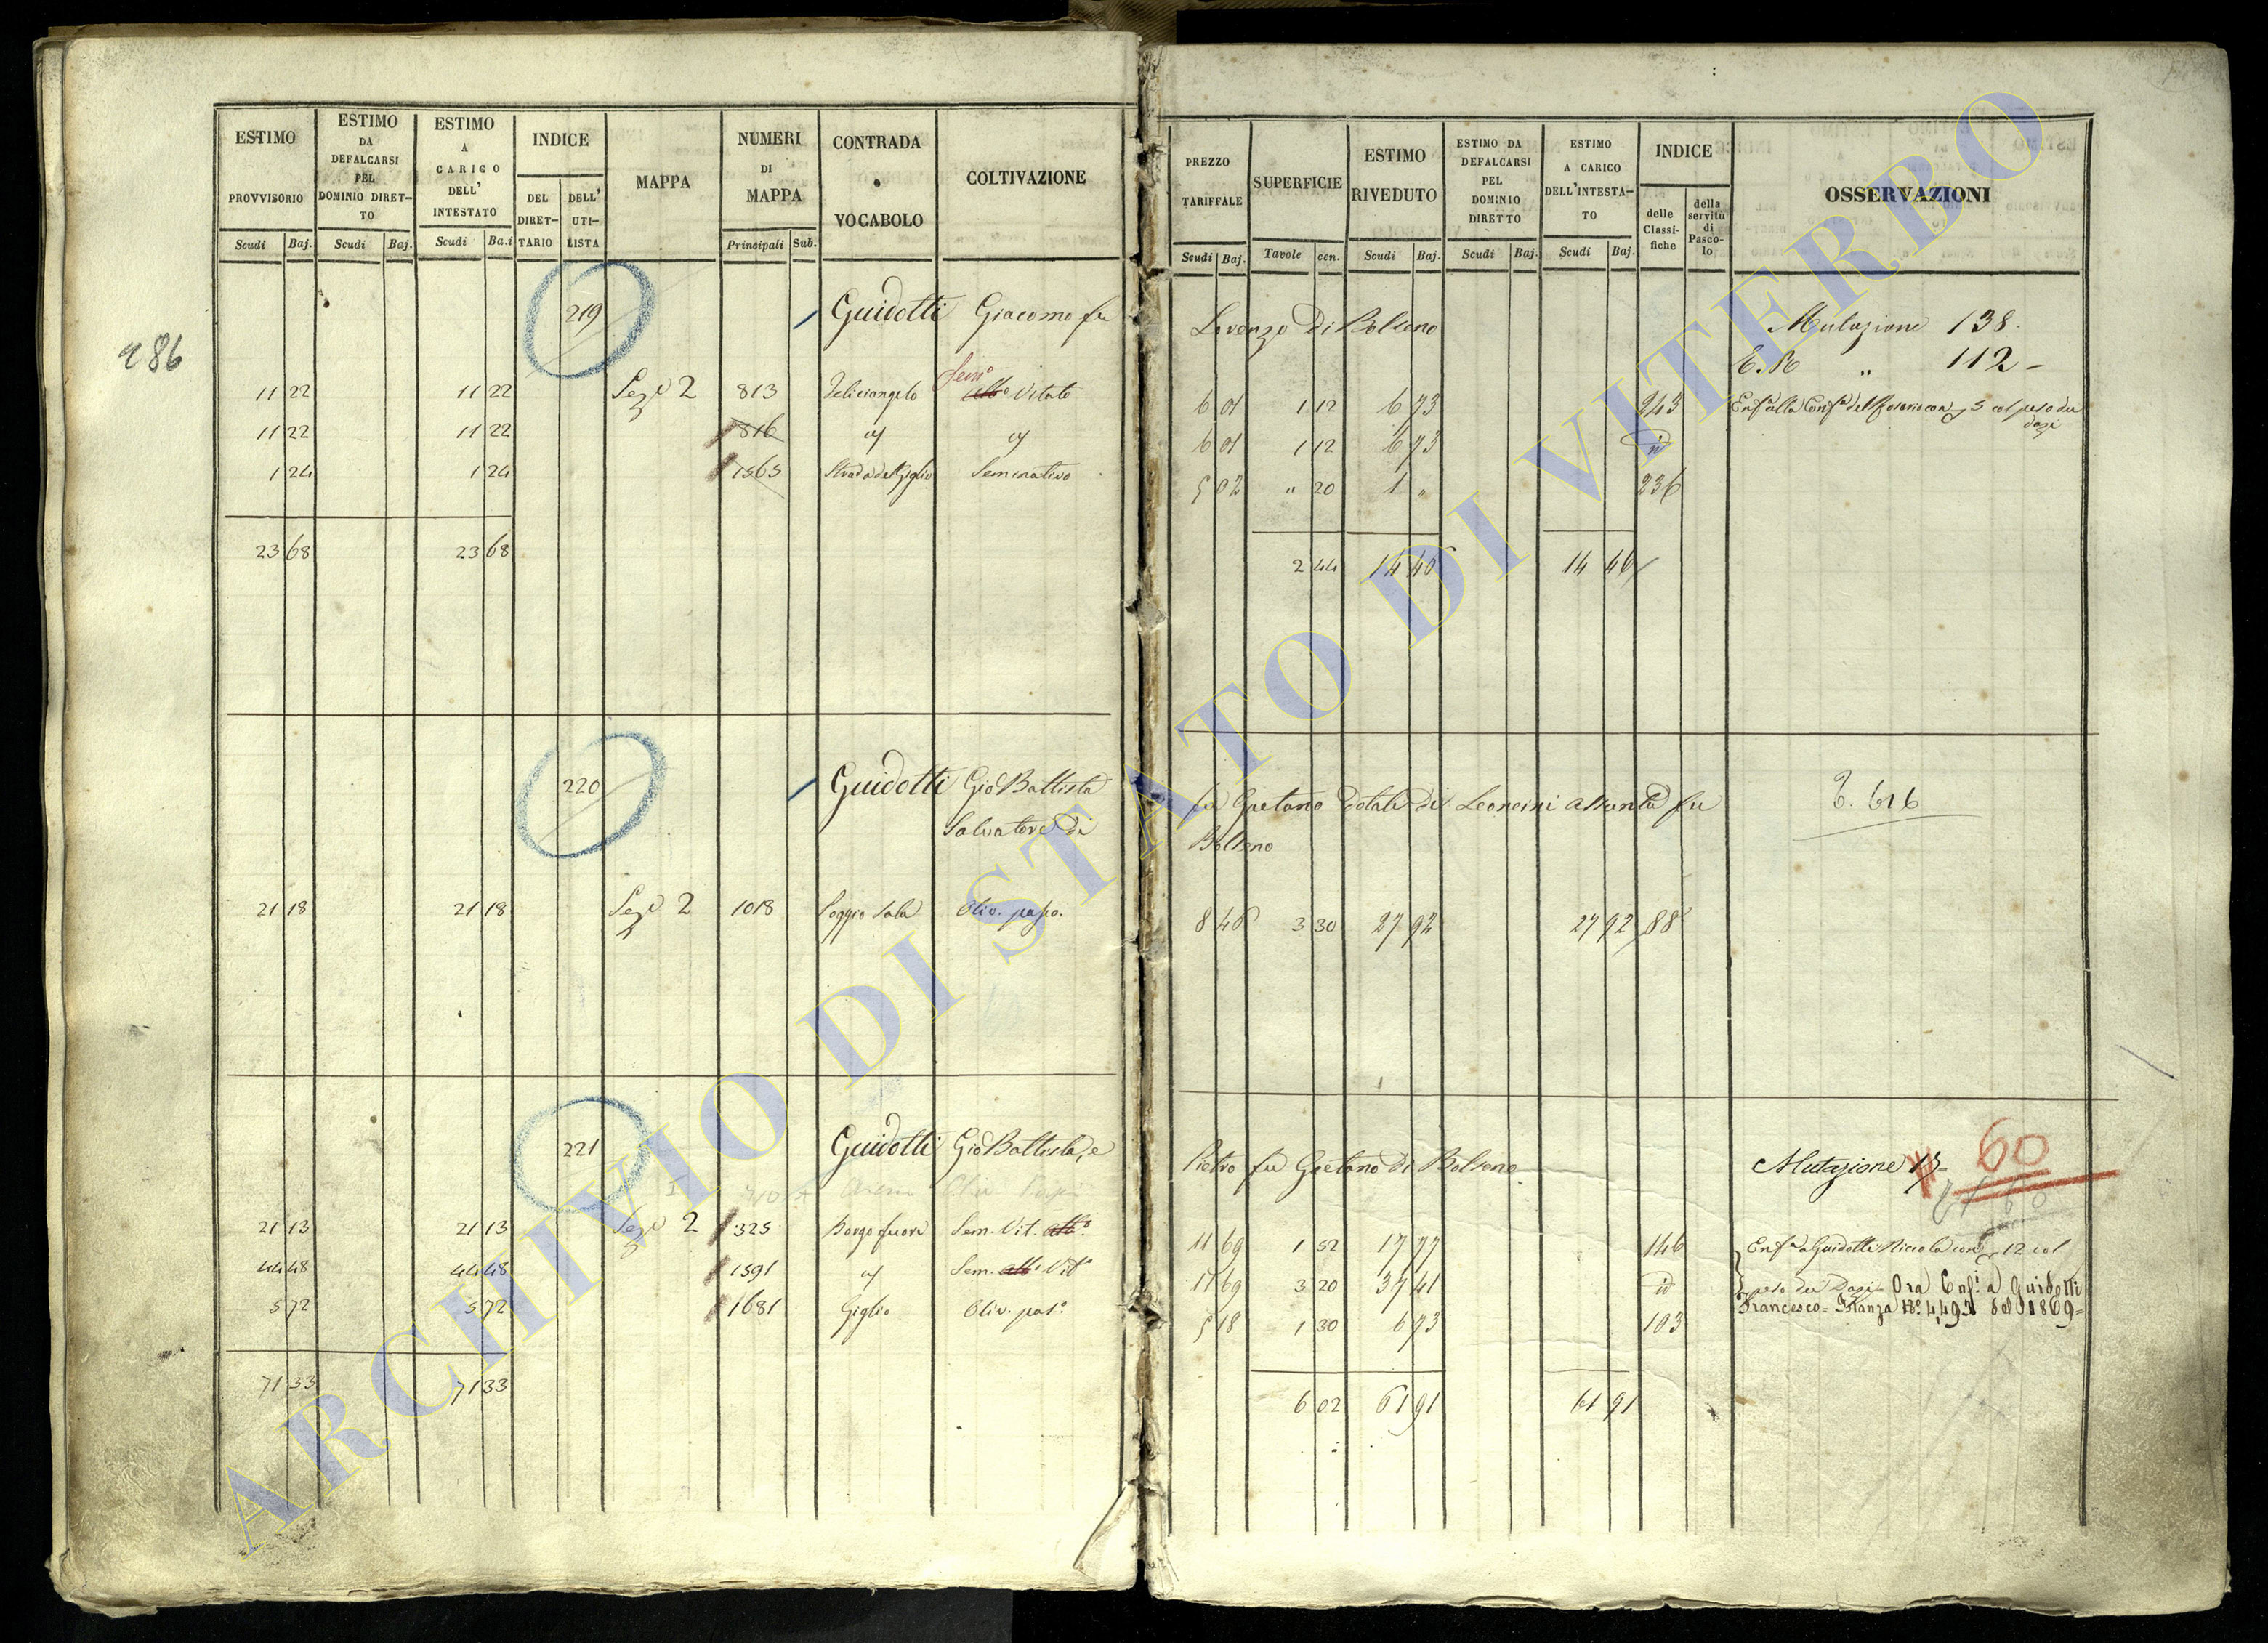 ESTIMO PROVVISORIO
ESTIMO DA DEFALCARSI PEL DOMINIO DIRET-TO
ESTIMO A CARICO DELL' INTESTATO
INDICE
DEL DIRET-TARIO
DELL' UTI-LISTA
MAPPA
NUMERI DI MAPPA
CONTRADA o VOCABOLO
COLTIVAZIONE
Scudi Baj. Scudi Baj. Scudi Ba.i Principali Sub.
PREZZO TARIFFALE
SUPERFICIE
ESTIMO RIVEDUTO
ESTIMO DA DEFALCARSI PEL DOMINIO DIRETTO
ESTIMO A CARICO DELL'INTESTA-TO
INDICE
delle Classi-fiche
della servitù di Pasco-lo
OSSERVAZIONI
Scudi Baj. Tavole cen. Scudi Baj. Scudi Baj. Scudi Baj.
286
219 Guidotti Giacomo fu Lorenzo di Bolseno Mutazione 138.
E. R. " 112 -
11 22 11 22 Sez.e 2 813 Feliciangelo Sem.o Vitato 6 01 1 12 6 73 243
11 22 11 22 816 6 01 1 12 6 73 id
1 24 1 24 1565 Strada del Giglio Seminativo 5 02 " 20 1 " 236
23 68 23 68 2 44 14 46 14 46
220 Guidotti Gio Battista fu Gaetano dotale di Leoncini Assunta fu
Salvatore di Bolseno
21 18 21 18 Sez.e 2 1018 Poggio Sala Oliv. pasco. 8 46 3 30 27 92 27 92 88
221 Guidotti Gio Battista, e Pietro fu Gaetano di Bolseno Mutazione 60
21 13 21 13 Sez.e 2 325 Borgo fuori Sem. Vit. 11 69 1 52 17 77 146
44 48 44 48 1591 Sem. Vit.o 11 69 3 20 37 41 id
5 72 5 72 1681 Giglio Oliv. pas.o 5 18 1 30 6 73 103
Enf.a a Guidotti Nicola con 12 col
peso dei Dazi Ora Enf.i a Guidotti
Francesco = Istanza N.o 4,493 del 1869 =
71 33 71 33 6 02 61 91 61 91
ARCHIVIO DI STATO DI VITERBO